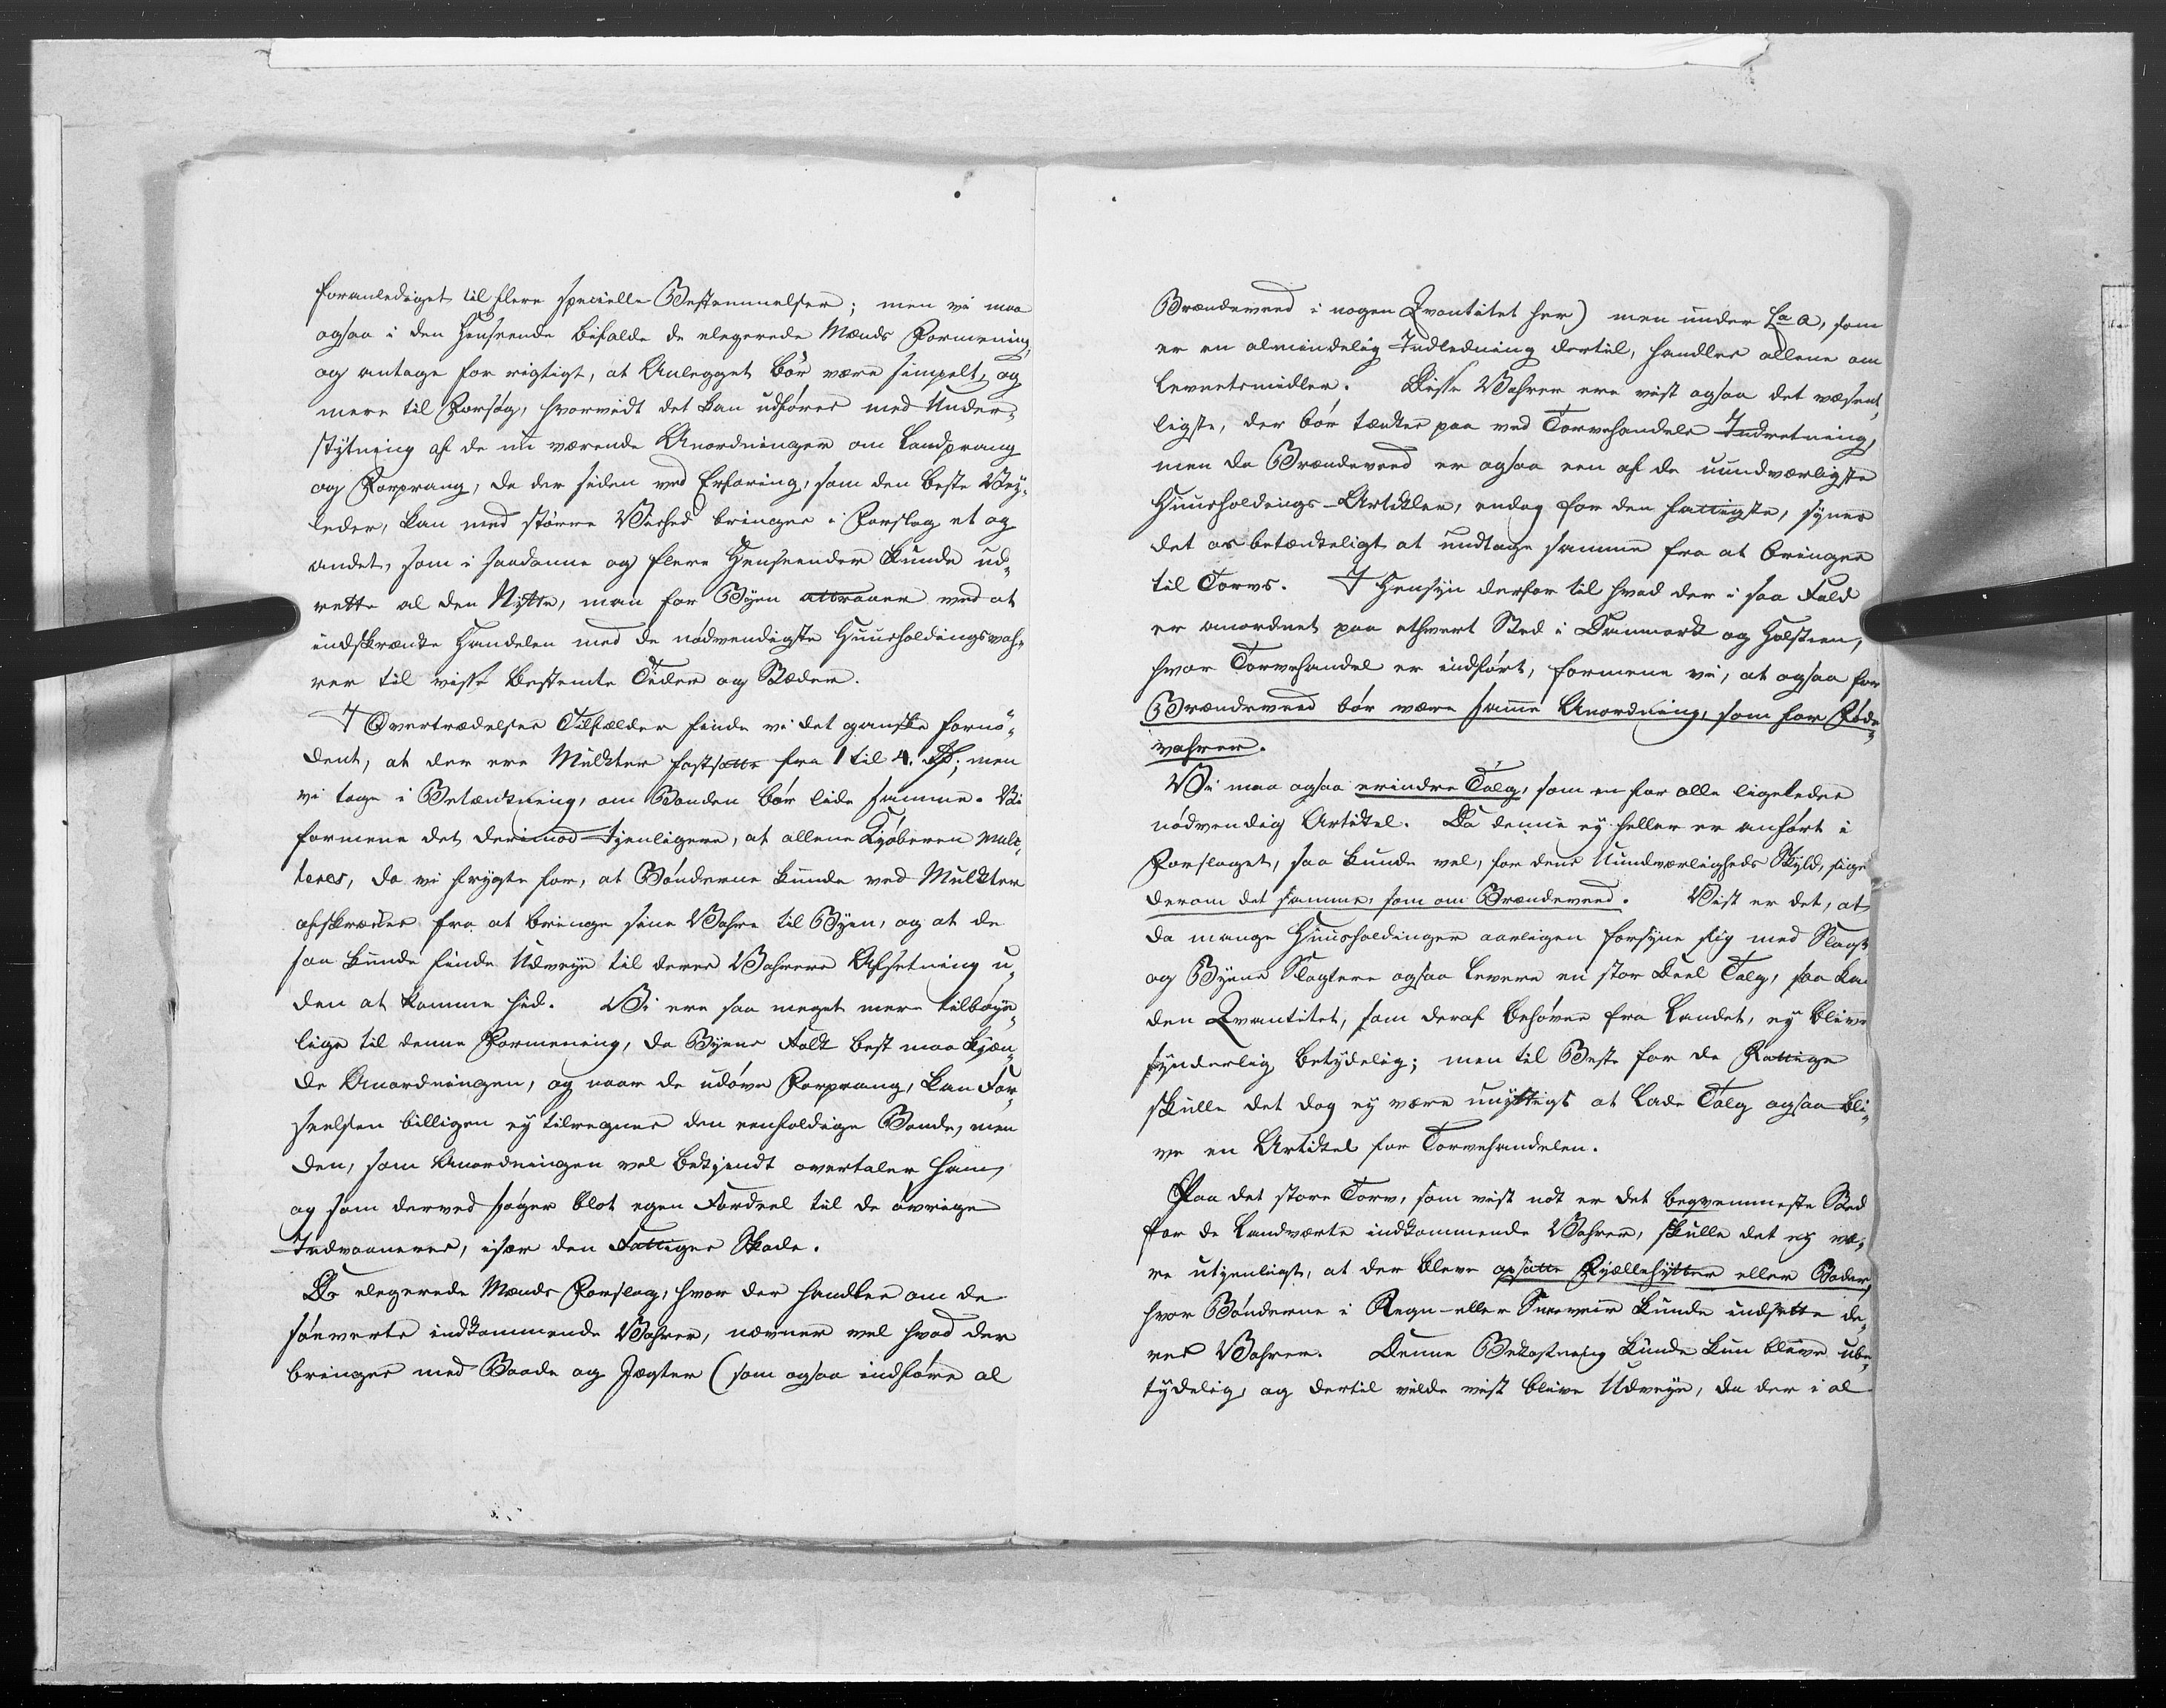 foranlediget til flere specielle Bestemmelser; men vi maa
ogsaa i den Henseende bifalde de elegerede Mænds Formening,
og antage for rigtigt, at Anlegget bör være simpelt, og
mere til Forsög, hvorvidt det kan udföres med Under-
stytning af de nu værende Anordninger om Landprang
og Forprang, da der siden ved Erfaring, som den beste Vey-
leder, kan med större Vished bringes i Forslag et og
andet, som i saadanne og flere Henseender kunde ud-
rette al den Nytte, man for Byen attraaer ved at
indskrænke Handelen med de nödvendigste Huusholdingsvah-
rer til visse bestemte Tider og Stæder.
I Overtrædelses Tilfælder finde vi det ganske fornö-
dent, at der ere Mulkter fastsatte fra 1 til 4 Rd; men
vi tage i Betænkning, om Bonden bör lide samme. Vi
formene det derimod tjenligere, at allene Kjöberen mulc-
teres, da vi frygte for, at Bönderne kunde ved Mulkter
afskrækkes fra at bringe sine Vahre til Byen, og at de
saa kunde finde Udveye til deres Vahrers Afsetning u-
den at komme hid. Vi ere saa meget mere tilböye-
lige til denne Formening, da Byens Folk best maa kjen-
de Anordningen, og naar de udöve Forprang, kan For-
seelsen billigen ey tilregnes den eenfoldige Bonde, men
den, som Anordningen vel bekjendt overtaler ham,
og som derved söger blot egen Fordeel til de övrige
Indvaaneres, især den Fattiges Skade.
De elegerede Mænds Forslag, hvor der handles om de
söeverts indkommende Vahrer, nævner vel hvad der
bringes med Baade og Jægter (som ogsaa indföre al
Brændeveed i nogen Qvantitet her) men under La a, som
er en almindelig Indledning dertil, handles allene om
Levnetsmidler. Disse Vahrer ere vist ogsaa det væsent-
ligste, der bör tænkes paa ved Torvehandels Indretning,
men da Brændeveed er ogsaa een af de uundværligste
Huusholdings-Artikler, endog for den fattigste, synes
det os betænkeligt at undtage samme fra at bringes
til Torvs. I Hensyn derfor til hvad der i saa Fald
er anordnet paa ethvert Sted i Danmark og Holsteen,
hvor Torvehandel er indfört, formene vi, at ogsaa for
Brændeveed bör være samme Anordning, som for Föde-
vahrer.
Vi maa ogsaa erindre Talg, som en for alle ligeledes
nödvendig Artikel. Da denne ey heller er anfört i
Forslaget, saa kunde vel, for dens Uundværligheds Skyld, sige
derom det samme, som om Brændeveed. Vist er det, at
da mange Huusholdinger aarligen forsyne sig med Slagt
og Byens Slagtere ogsaa levere en stor Deel Talg, saa kan
den Qvantitet, som deraf behöves fra Landet, ey blive
synderlig betydelig; men til Beste for de Fattige
skulle det dog ey være unyttigt at lade Talg ogsaa bli-
ve en Artikel for Torvehandelen.
Paa det store Torv, som vist nok er det beqvemmeste Sted
for de Landværts indkommende Vahrer, skulle det ey væ-
re utjenligt, at der bleve opsatte Fjællehytter eller Boder,
hvor Bönderne i Regn- eller Sneeveir kunde indsette de-
res Vahrer. Denne Bekostning kunde kun blive ube-
tydelig, og dertil vilde vist blive Udveye, da der i al